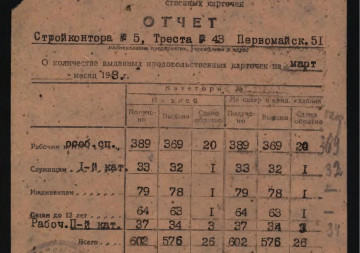 ственных карточек
ОТЧЕТ
Стройконтора № 5, Треста № 43 Первомайск. 51
О количестве выданных продовольственных карточек на март
месяц 194 г.
Категория
На хлеб
На сахар и конд. изделия
Получено Выдано Сдано обратно Получено Выдано Сдано обратно
Рабочим особ.сп. 389 369 20 389 369 20 369
Служащим I-й кат. 33 32 I 33 32 I 32
Иждивенцам 79 78 I 79 78 I
Детям до 12 лет 64 63 I 64 63 I
Рабоч. II-й кат. 37 34 3 37 34 3 34
Всего 602 576 26 602 576 26